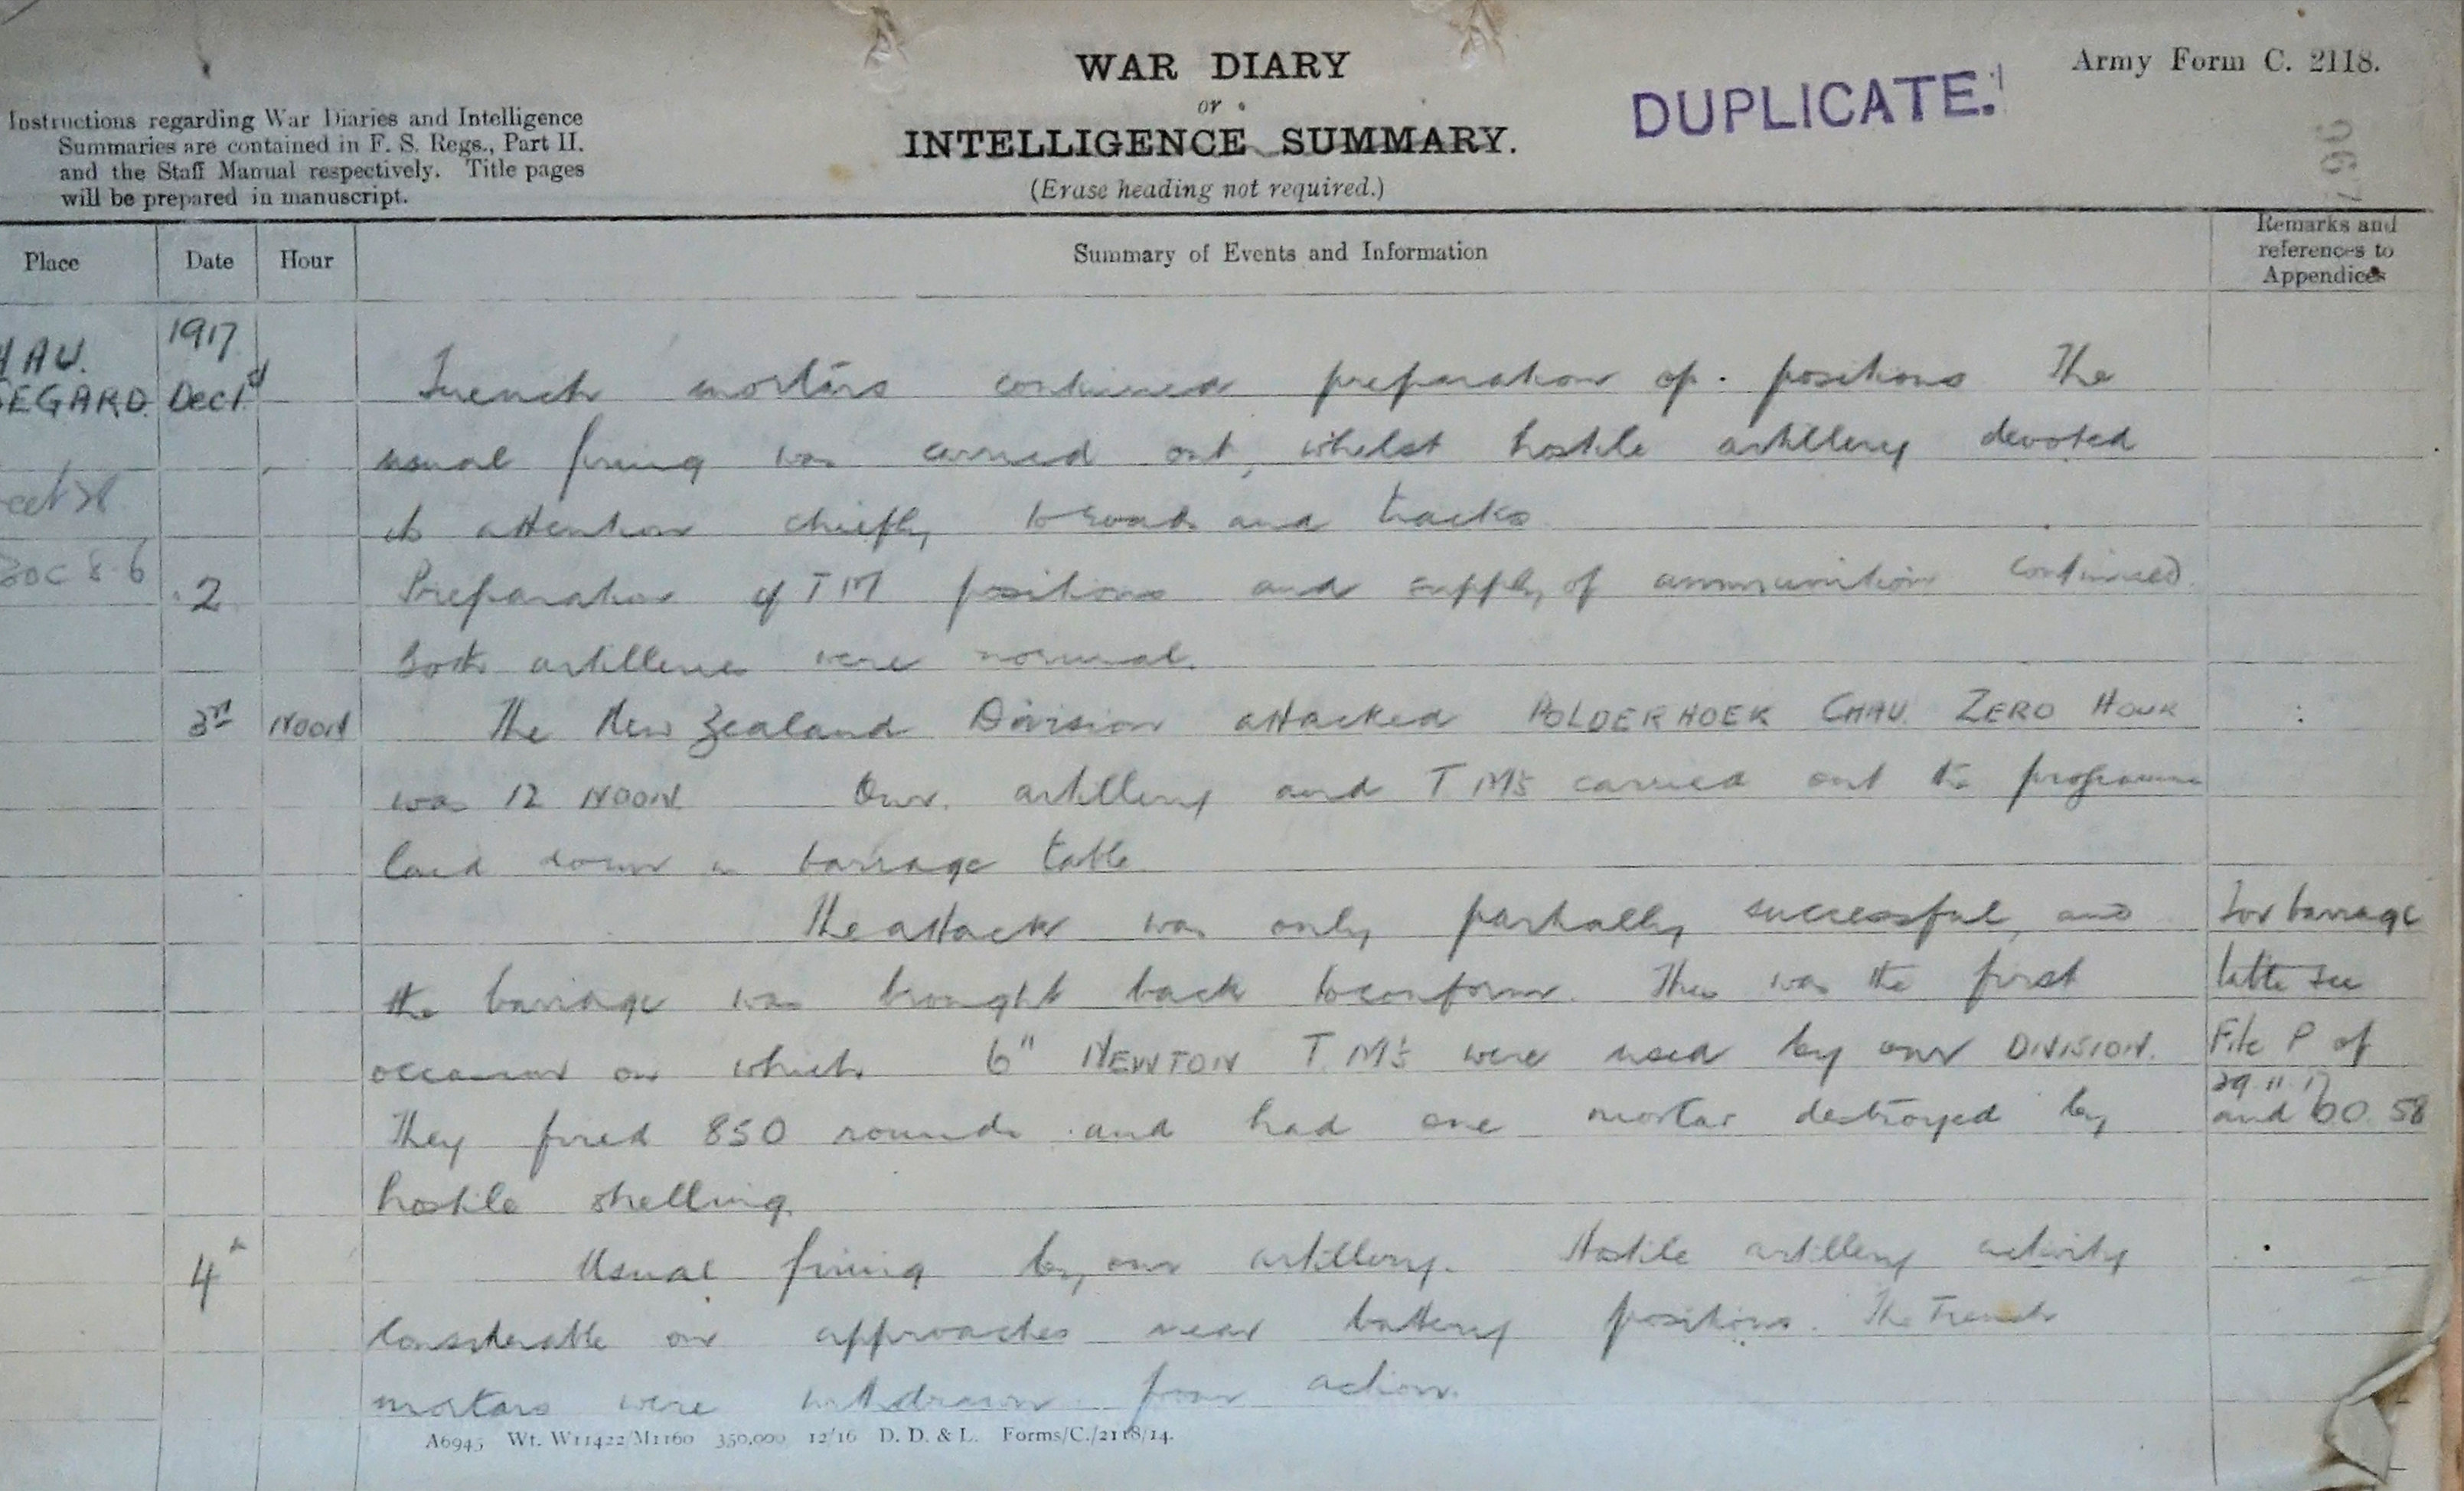 WAR DIARY
or
INTELLIGENCE SUMMARY.
(Erase heading not required.)
Army Form C. 2118.
DUPLICATE.
Instructions regarding War Diaries and Intelligence
Summaries are contained in F. S. Regs., Part II.
and the Staff Manual respectively. Title pages
will be prepared in manuscript.
Place Date Hour Summary of Events and Information
Remarks and
references to
Appendices
HAU.
SEGARD.
1917
Dec 1st
Trench mortars continued preparation of positions The
usual firing was carried out, whilst hostile artillery devoted
its attention chiefly to roads and tracks
2 Preparation of TM positions and supply of ammunition continued.
Both artilleries were normal.
3rd NOON The New Zealand Division attacked POLDERHOEK CHAU. ZERO HOUR
was 12 NOON Our artillery and T M's carried out the programme
laid down in barrage table.
The attack was only partially successful, and
the barrage was brought back to conform. This was the first
occasion on which 6" NEWTON T.M's were used by our DIVISION.
They fired 850 rounds and had one mortar destroyed by
hostile shelling.
For barrage
table see
File P of
29.11.17
and OO. 58
4th Usual firing by our artillery. Hostile artillery activity
considerable on approaches near battery positions. The Trench
mortars were withdrawn from action.
A6945 Wt. W11422/M1160 350,000 12/16 D. D. & L. Forms/C./2118/14.